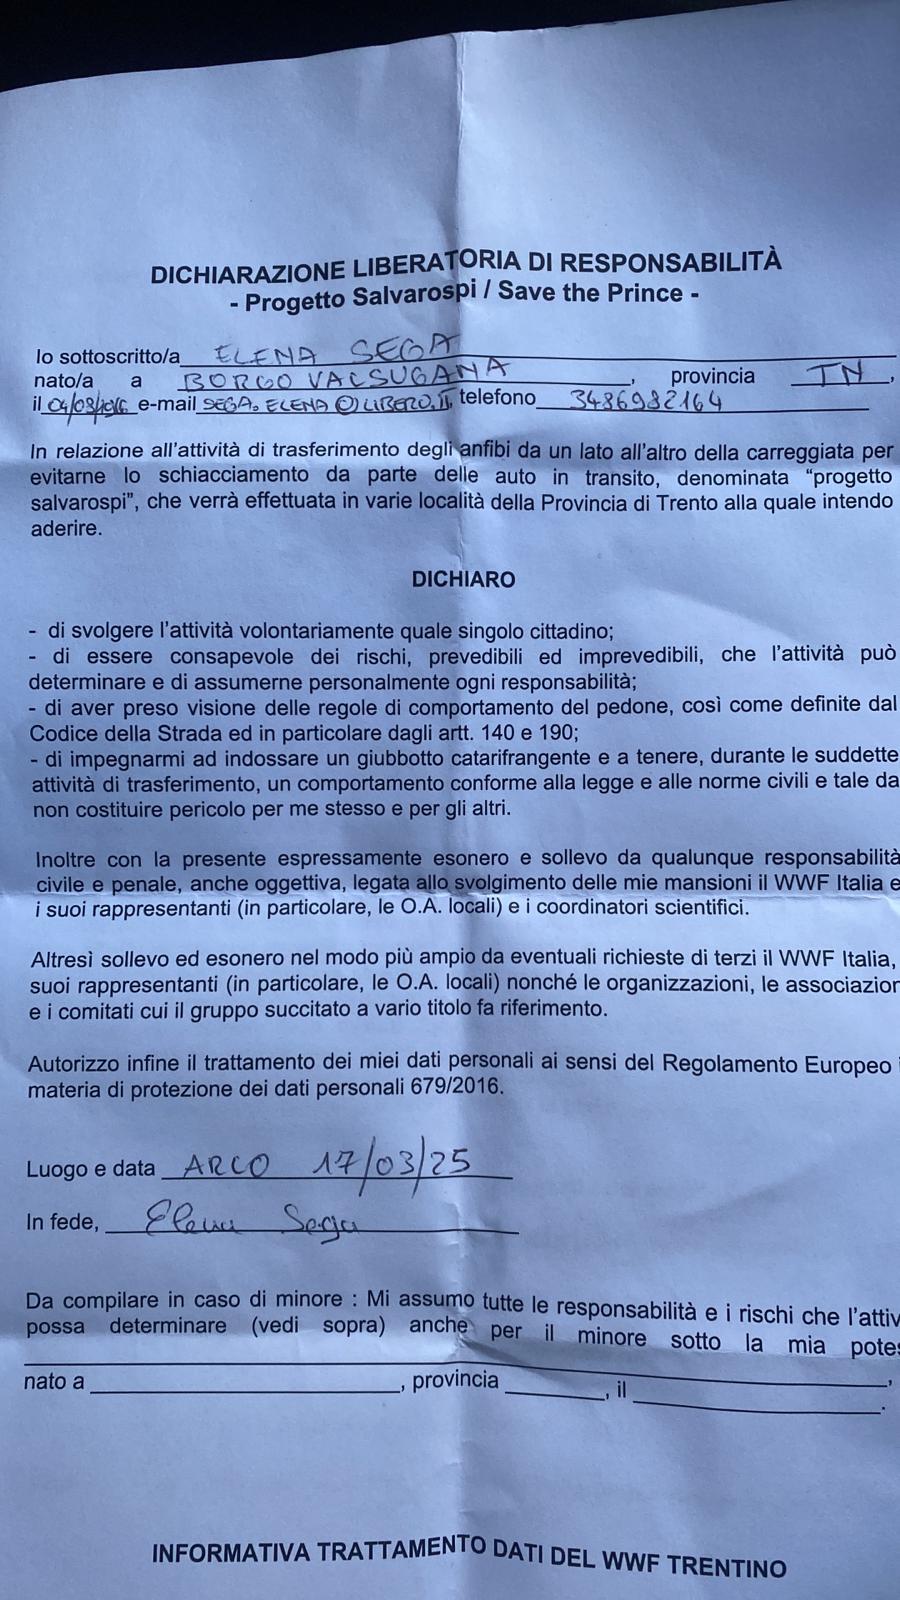 DICHIARAZIONE LIBERATORIA DI RESPONSABILITÀ
- Progetto Salvarospi / Save the Prince -
Io sottoscritto/a ELENA SEGA
nato/a a BORGO VALSUGANA, provincia TN,
il e-mail SEGA.ELENA@LIBERO.IT telefono 3486982164
In relazione all'attività di trasferimento degli anfibi da un lato all'altro della carreggiata per
evitarne lo schiacciamento da parte delle auto in transito, denominata "progetto
salvarospi", che verrà effettuata in varie località della Provincia di Trento alla quale intendo
aderire.
DICHIARO
- di svolgere l'attività volontariamente quale singolo cittadino;
- di essere consapevole dei rischi, prevedibili ed imprevedibili, che l'attività può
determinare e di assumerne personalmente ogni responsabilità;
- di aver preso visione delle regole di comportamento del pedone, così come definite dal
Codice della Strada ed in particolare dagli artt. 140 e 190;
- di impegnarmi ad indossare un giubbotto catarifrangente e a tenere, durante le suddette
attività di trasferimento, un comportamento conforme alla legge e alle norme civili e tale da
non costituire pericolo per me stesso e per gli altri.
Inoltre con la presente espressamente esonero e sollevo da qualunque responsabilità
civile e penale, anche oggettiva, legata allo svolgimento delle mie mansioni il WWF Italia e
i suoi rappresentanti (in particolare, le O.A. locali) e i coordinatori scientifici.
Altresì sollevo ed esonero nel modo più ampio da eventuali richieste di terzi il WWF Italia,
suoi rappresentanti (in particolare, le O.A. locali) nonché le organizzazioni, le associazion
e i comitati cui il gruppo succitato a vario titolo fa riferimento.
Autorizzo infine il trattamento dei miei dati personali ai sensi del Regolamento Europeo i
materia di protezione dei dati personali 679/2016.
Luogo e data ARCO 17/03/25
In fede, Elena Sega
Da compilare in caso di minore : Mi assumo tutte le responsabilità e i rischi che l'attiv
possa determinare (vedi sopra) anche per il minore sotto la mia potes
,
nato a , provincia , il .
INFORMATIVA TRATTAMENTO DATI DEL WWF TRENTINO